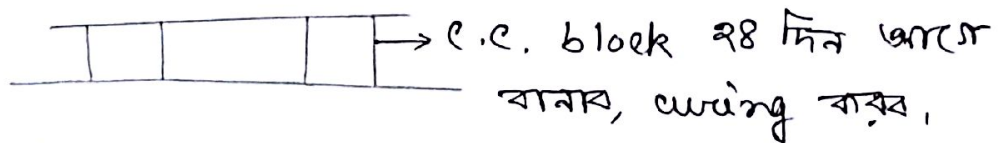 C.C. block ২৪ দিন আগে
বানাব, curing করব,